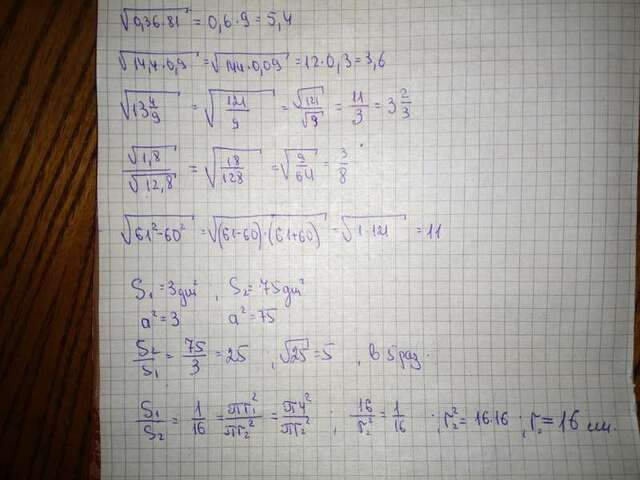 √0,36·81 = 0,6·9 = 5,4
√14,4·0,9 = √144·0,09 = 12·0,3 = 3,6
√13 4/9 = √121/9 = √121/√9 = 11/3 = 3 2/3
√1,8/√12,8 = √18/128 = √9/64 = 3/8
√61²-60² = √(61-60)·(61+60) = √1·121 = 11
S₁ = 3дм², S₂ = 75дм²
a² = 3 a² = 75
S₂/S₁ = 75/3 = 25 ; √25 = 5 , в 5 раз.
S₁/S₂ = 1/16 = πr₁²/πr₂² = π4²/πr₂² ; 16/r₂² = 1/16 ; r₂² = 16·16 ; r₂ = 16 см.